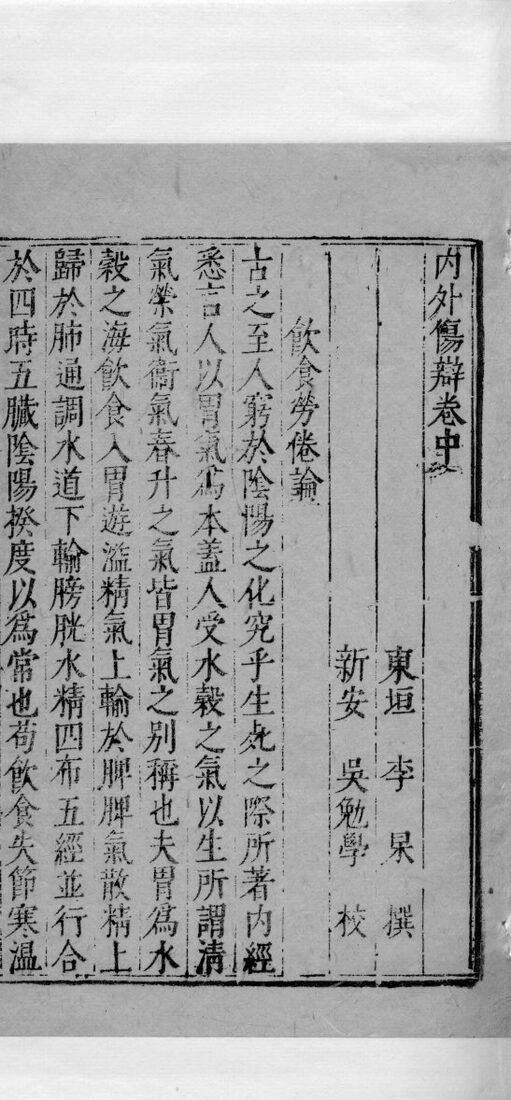 內外傷辯卷中
東垣 李杲 撰
新安 吳勉學 校
飲食勞倦論
古之至人窮於陰陽之化究乎生死之際所著內經
悉言人以胃氣爲本蓋人受水穀之氣以生所謂清
氣榮氣衞氣春升之氣皆胃氣之別稱也夫胃爲水
穀之海飲食入胃遊溢精氣上輸於脾脾氣散精上
歸於肺通調水道下輸膀胱水精四布五經並行合
於四時五臟陰陽揆度以爲常也苟飲食失節寒溫